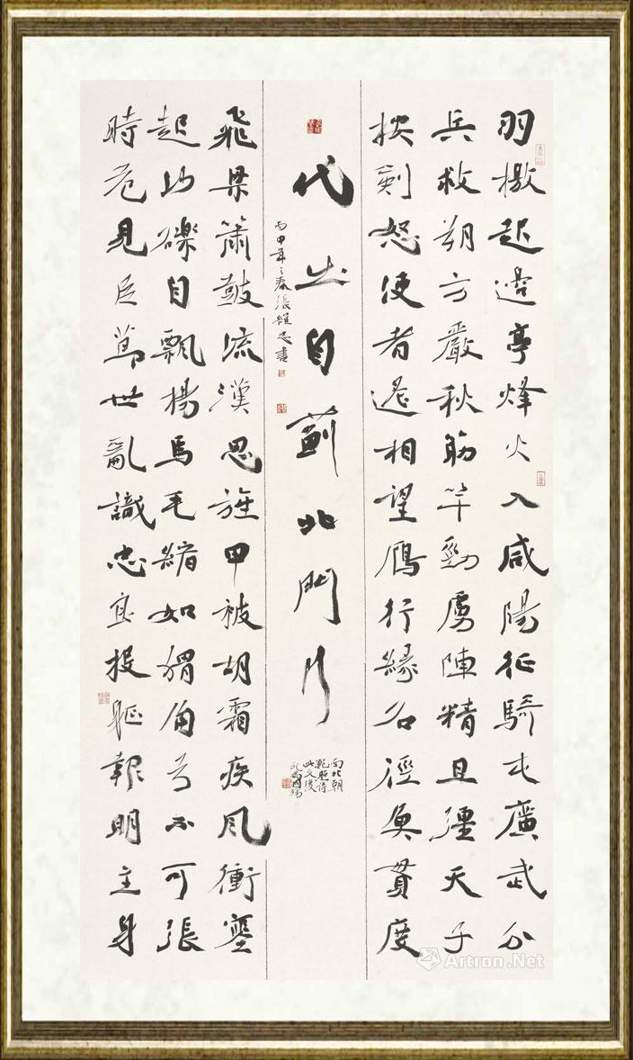 羽檄起邊亭烽火入咸陽征騎屯廣武分
兵救朔方嚴秋筋竿勁虜陣精且彊天子
按劍怒使者遙相望鴈行緣石徑魚貫度
代出自薊北門行
丙申年之春張
南北朝
鮑照詩
飛梁簫鼓流漢思旌甲被胡霜疾風衝塞
起沙礫自飄楊馬毛縮如蝟角弓不可張
時危見臣節世亂識忠良投軀報明主身
Artron.Net